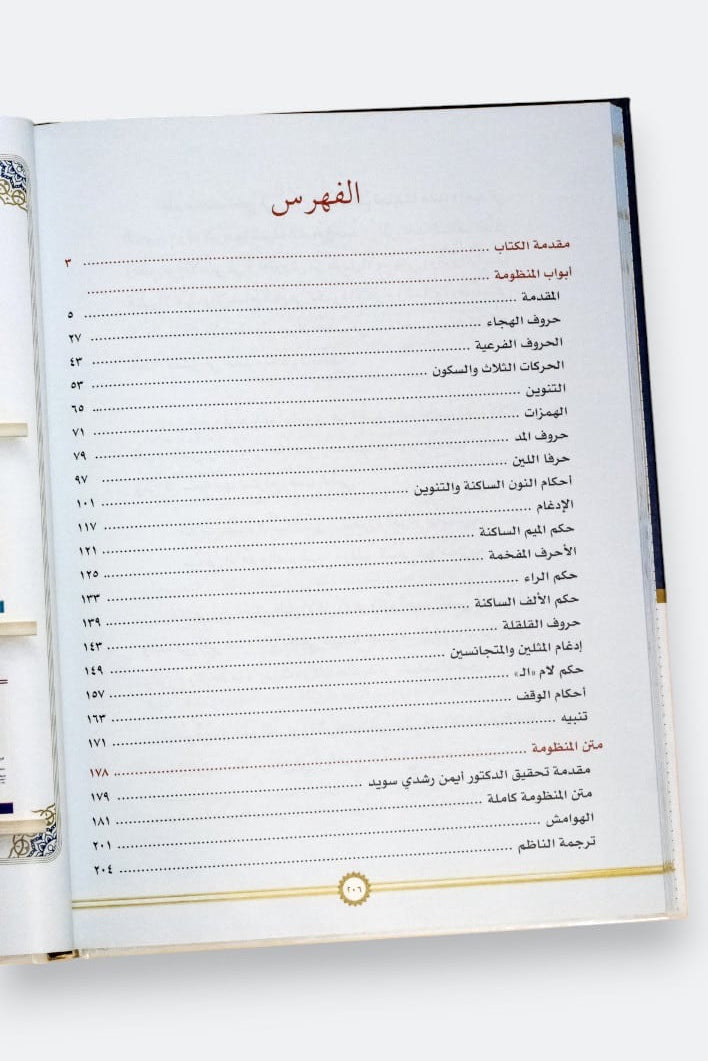 الفهرس
مقدمة الكتاب ................ ٣
أبواب المنظومة ................
المقدمة ................ ٥
حروف الهجاء ................ ٢٧
الحروف الفرعية ................ ٤٣
الحركات الثلاث والسكون ................ ٥٣
التنوين ................ ٦٥
الهمزات ................ ٧١
حروف المد ................ ٧٩
حرفا اللين ................ ٩٧
أحكام النون الساكنة والتنوين ................ ١٠١
الإدغام ................ ١١٧
حكم الميم الساكنة ................ ١٢١
الأحرف المفخمة ................ ١٢٥
حكم الراء ................ ١٣٣
حكم الألف الساكنة ................ ١٣٩
حروف القلقلة ................ ١٤٣
إدغام المثلين والمتجانسين ................ ١٤٩
حكم لام «الـ» ................ ١٥٧
أحكام الوقف ................ ١٦٣
تنبيه ................ ١٧١
متن المنظومة ................ ١٧٨
مقدمة تحقيق الدكتور أيمن رشدي سويد ................ ١٧٩
متن المنظومة كاملة ................ ١٨١
الهوامش ................ ٢٠١
ترجمة الناظم ................ ٢٠٤
٢٠٦